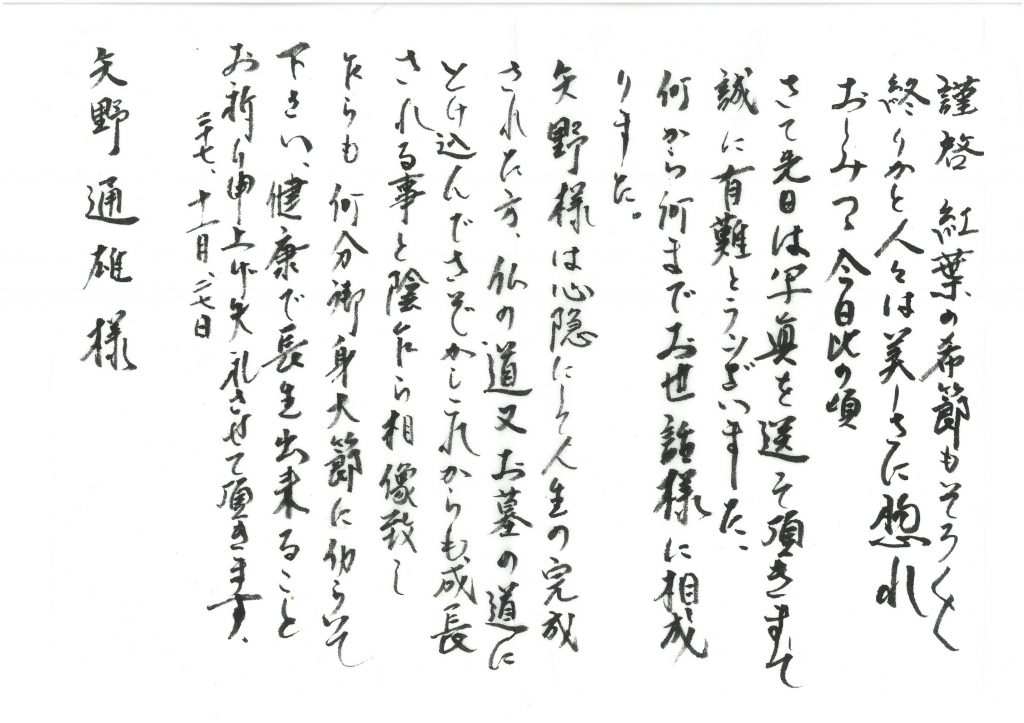 謹啓 紅葉の希節もそろ〱
終りかと人々は美しさに惚れ
おしみつつ今日此の頃
さて先日は写真を送って頂きまして
誠に有難とうございました、
何から何までお世話様に相成
りました。
矢野様は心隠にして人生の完成
された方、仏の道又お墓の道に
とけ込んでさぞかしこれからも、成長
される事と陰乍ら相像致し
乍らも何分御身大節に仂らいて
下さい、健康で長生出来ること
お祈り申上げ失礼させて頂きます、
二十七、十一月、二七日
矢野通雄様